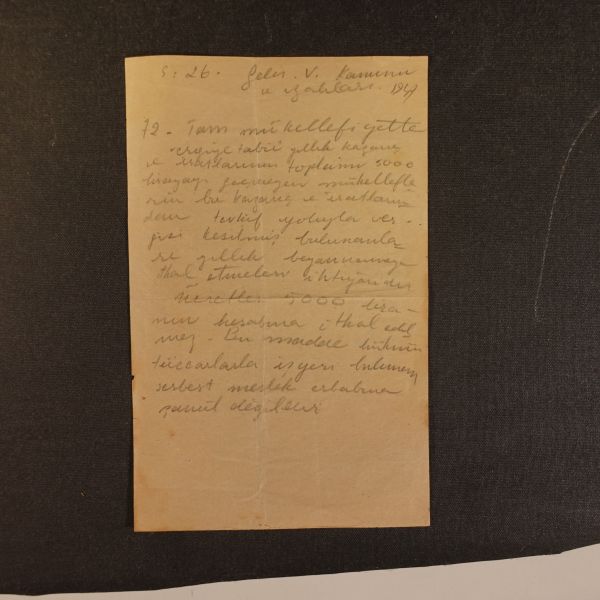 S: 26. Gelir. V. Kanunu
ve izahları. 1947
72 - Tam mükellefiyette
vergiye tabi yıllık kazanç
ve iratlarının toplamı 5000
lirayı geçmeyen mükellefle
rin bu kazanç ve iratların
dan tevkif yoluyla ver-
gisi kesilmiş bulunanla
rı yıllık beyannameye
ithal etmeleri ihtiyaridir
Ücretler 5000 lira-
nın hesabına ithal edil
mez. Bu madde hükmü
tüccarlarla işyeri bulunan
serbest meslek erbabına
şamil değildir